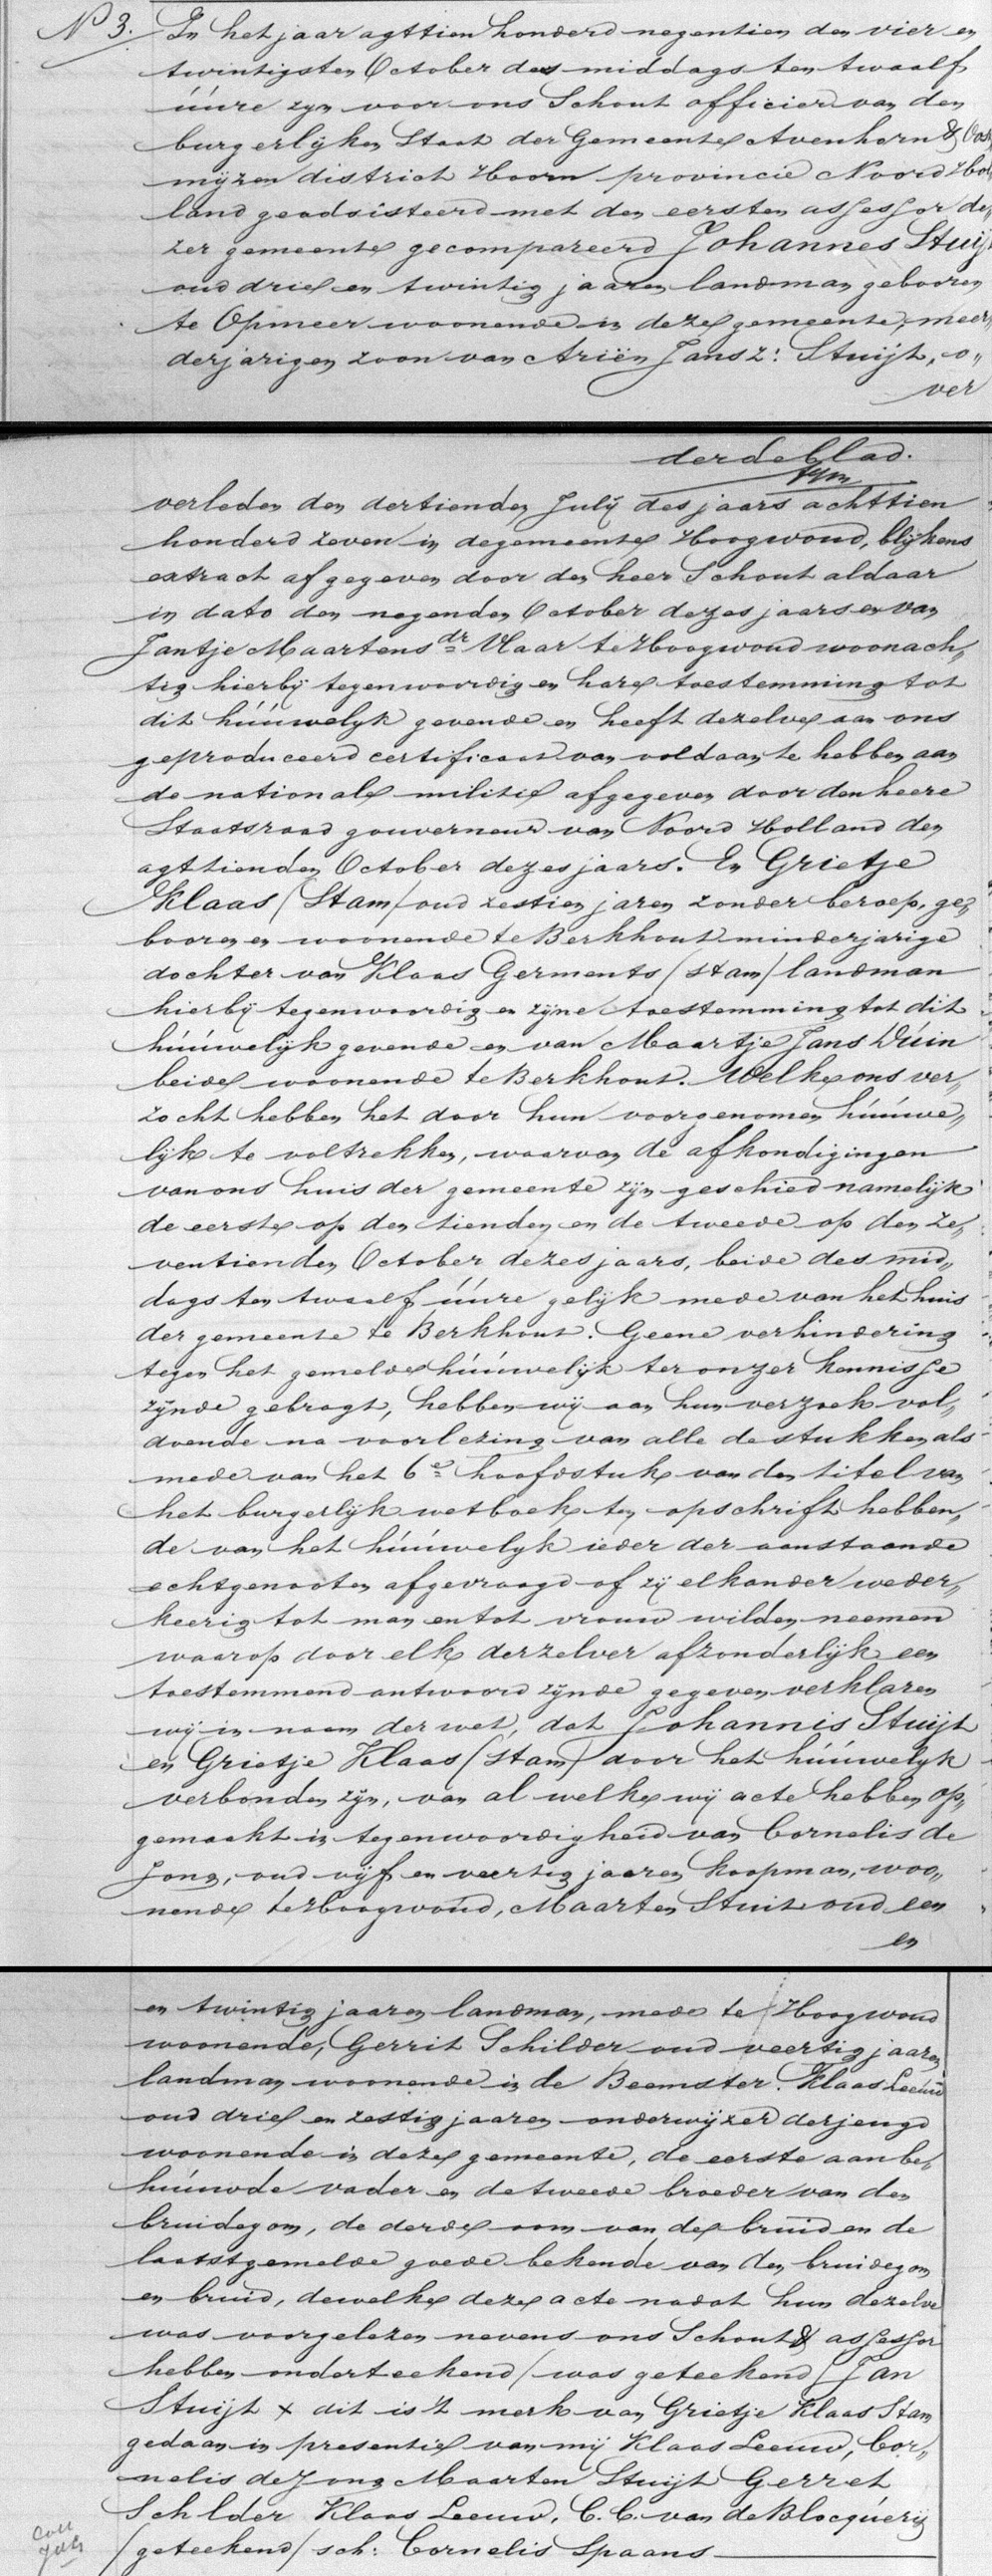 N° 3. In het jaar agttien honderd negentien den vier en
twintigsten October des middags ten twaalf
úúre zyn voor ons Schout officier van den
burgerlijken Staat der Gemeente Avenhorn & Oos
mijzen district Hoorn provincie Noord Hol
land geadsisteerd met den eersten assessor de„
zer gemeente gecompareerd Johannes Stuij
oud drie en twintig jaaren landman gebooren
te Opmeer woonende in deze gemeente, meer„
derjarigen zoon van Ariën Jansz: Stuijt, o„
ver
derde blad.
verleden den dertienden July des jaars achttien
honderd zeven in de gemeente Hoogwoud, blijkens
extract afgegeven door den heer Schout aldaar
in dato den negenden October dezes jaars en van
Jantje Maartensdr Vlaar te Hoogwoud woonach„
tig hierby tegenwoordig en hare toestemming tot
dit húúwelyk gevende en heeft dezelve aan ons
geproduceerd certificaat van voldaan te hebben aan
de nationale militie afgegeven door den heere
Staatsraad gouverneur van Noord Holland den
agttienden October dezes jaars. En Grietje
Klaas (Stam) oud zestien jaren zonder beroep, ge„
booren en woonende te Berkhout minderjarige
dochter van Klaas Germents (Stam) landman
hierbij tegenwoordig en zijne toestemming tot dit
húúwelijk gevende en van Maartje Jans Dúin
beide woonende te Berkhout. Welke ons ver„
zocht hebben het door hun voorgenomen húúwe„
lijk te voltrekken, waarvan de afkondigingen
van ons huis der gemeente zijn geschied namelijk
de eerste op den tienden en de tweede op den ze„
ventienden October dezes jaars, beide des mid„
dags ten twaalf úúre gelijk mede van het huis
der gemeente te Berkhout. Geene verhindering
tegen het gemelde húúwelijk ter onzer kennisse
zijnde gebragt, hebben wij aan hun verzoek vol„
doende na voorlezing van alle de stukken als
mede van het 6e hoofdstuk van den titel van
het burgerlijk wetboek ten opschrift hebben„
de van het húúwelyk ieder der aanstaande
echtgenooten afgevraagd of zij elkander weder„
keerig tot man en tot vrouw wilden neemen
waarop door elk derzelver afzonderlijk een
toestemmend antwoord zijnde gegeven verklaren
wij in naam der wet, dat Johannis Stuijt
en Grietje Klaas (Stam) door het húúwelyk
verbonden zijn, van al welke wij acte hebben op„
gemaakt in tegenwoordigheid van Cornelis de
Jong, oud vijf en veertig jaaren koopman, woo„
nende te Hoogwoud, Maarten Stuit oud een
en
en twintig jaaren landman, mede te Hoogwoud
woonende, Gerrit Schilder oud veertig jaaren
landman woonende in de Beemster. Klaas Leeuw
oud drie en zestig jaaren onderwijzer der jeugd
woonende in deze gemeente, de eerste aan be„
húúwde vader en de tweede broeder van den
bruidegom, de derde oom van de bruid en de
laatstgemelde goede bekende van den bruidegom
en bruid, dewelke deze acte nadat hun dezelve
was voorgelezen nevens ons Schout & assessor
hebben onderteekend (was geteekend) Jan
Stuijt x dit is 't merk van Grietje Klaas Stam
gedaan in presentie van mij Klaas Leeuw, Cor„
nelis de Jong Maarten Stuijt Gerret
Schlder Klaas Leeuw, C. C. van de Blocquerij
(geteekend) sch: Cornelis Spaans